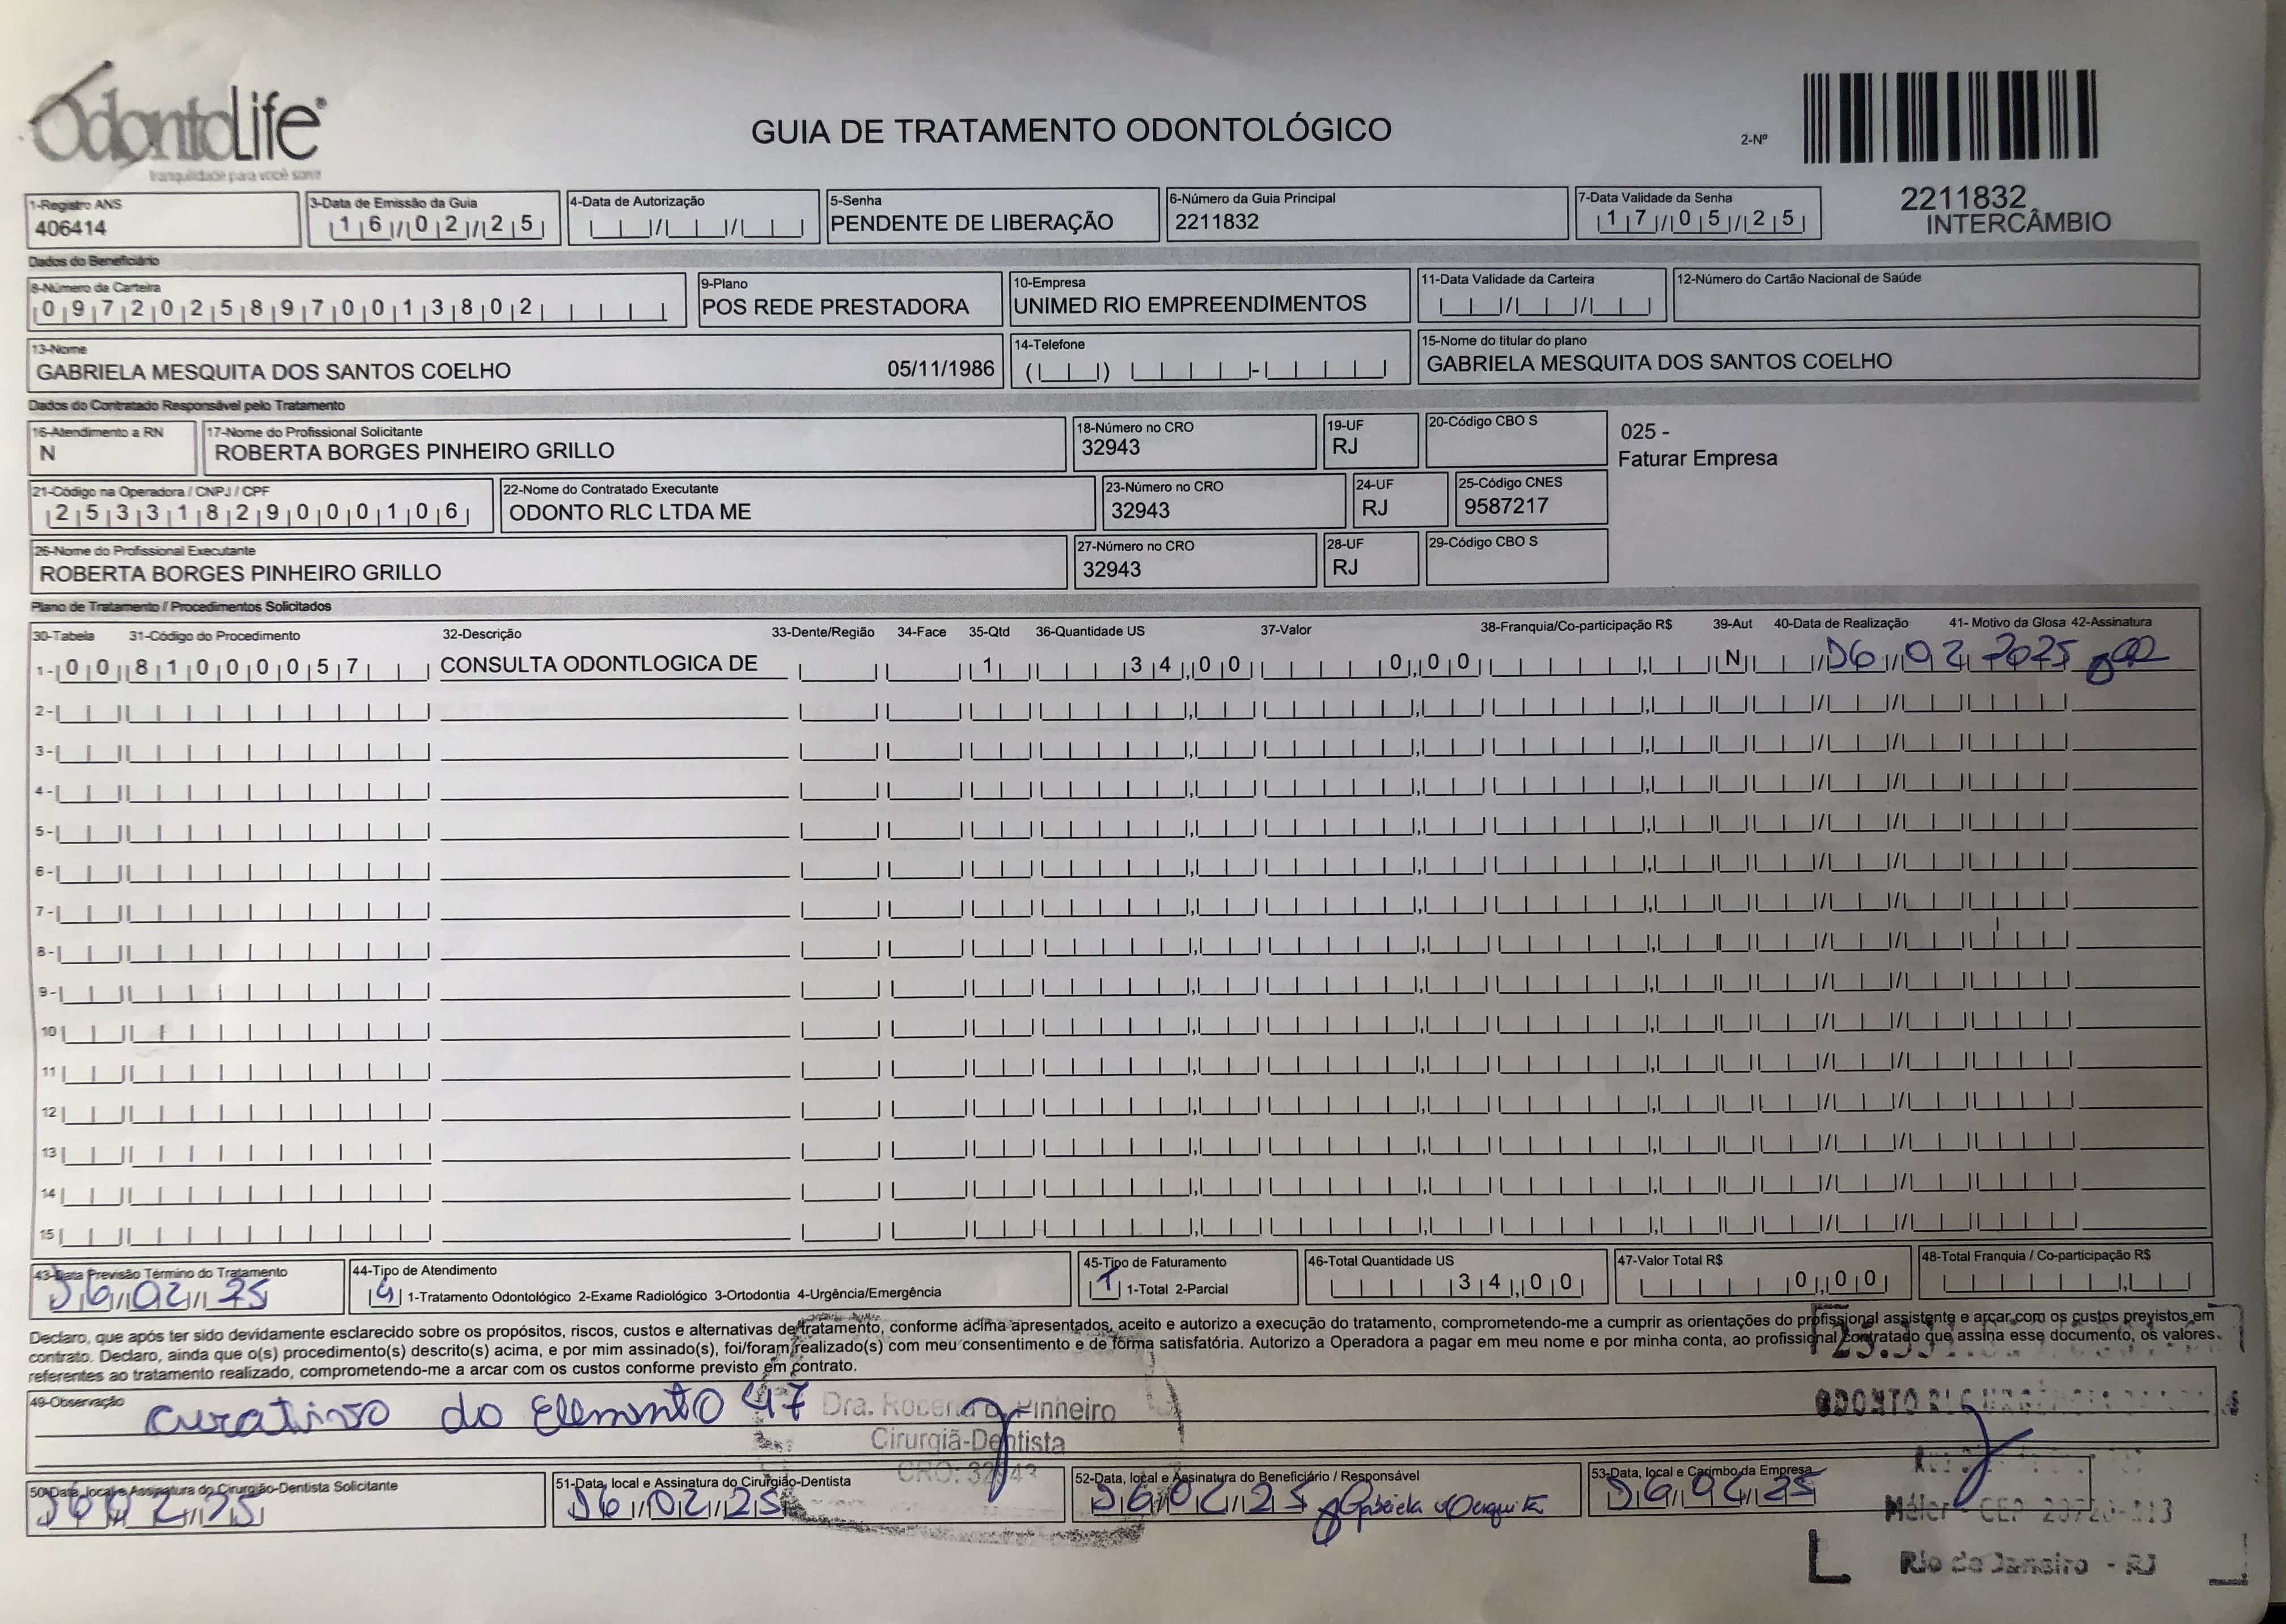 OdontoLife®
tranquilidade para você sorrir
GUIA DE TRATAMENTO ODONTOLÓGICO
2-Nº
2211832
INTERCÂMBIO
1-Registro ANS
406414
3-Data de Emissão da Guia
16/02/25
4-Data de Autorização
5-Senha
PENDENTE DE LIBERAÇÃO
6-Número da Guia Principal
2211832
7-Data Validade da Senha
17/05/25
Dados do Beneficiário
8-Número da Carteira
09720258970013802
9-Plano
POS REDE PRESTADORA
10-Empresa
UNIMED RIO EMPREENDIMENTOS
11-Data Validade da Carteira
12-Número do Cartão Nacional de Saúde
13-Nome
GABRIELA MESQUITA DOS SANTOS COELHO 05/11/1986
14-Telefone
15-Nome do titular do plano
GABRIELA MESQUITA DOS SANTOS COELHO
Dados do Contratado Responsável pelo Tratamento
16-Atendimento a RN
N
17-Nome do Profissional Solicitante
ROBERTA BORGES PINHEIRO GRILLO
18-Número no CRO
32943
19-UF
RJ
20-Código CBO S
025 -
Faturar Empresa
21-Código na Operadora / CNPJ / CPF
25331829000106
22-Nome do Contratado Executante
ODONTO RLC LTDA ME
23-Número no CRO
32943
24-UF
RJ
25-Código CNES
9587217
26-Nome do Profissional Executante
ROBERTA BORGES PINHEIRO GRILLO
27-Número no CRO
32943
28-UF
RJ
29-Código CBO S
Plano de Tratamento / Procedimentos Solicitados
30-Tabela 31-Código do Procedimento 32-Descrição 33-Dente/Região 34-Face 35-Qtd 36-Quantidade US 37-Valor 38-Franquia/Co-participação R$ 39-Aut 40-Data de Realização 41- Motivo da Glosa 42-Assinatura
1- 00 81000057 CONSULTA ODONTLOGICA DE 1 34,00 0,00 N 16/02/2025
2-
3-
4-
5-
6-
7-
8-
9-
10
11
12
13
14
15
43-Data Previsão Término do Tratamento
16/02/25
44-Tipo de Atendimento
4 1-Tratamento Odontológico 2-Exame Radiológico 3-Ortodontia 4-Urgência/Emergência
45-Tipo de Faturamento
1 1-Total 2-Parcial
46-Total Quantidade US
34,00
47-Valor Total R$
0,00
48-Total Franquia / Co-participação R$
Declaro, que após ter sido devidamente esclarecido sobre os propósitos, riscos, custos e alternativas de tratamento, conforme acima apresentados, aceito e autorizo a execução do tratamento, comprometendo-me a cumprir as orientações do profissional assistente e arcar com os custos previstos em
contrato. Declaro, ainda que o(s) procedimento(s) descrito(s) acima, e por mim assinado(s), foi/foram realizado(s) com meu consentimento e de forma satisfatória. Autorizo a Operadora a pagar em meu nome e por minha conta, ao profissional contratado que assina esse documento, os valores
referentes ao tratamento realizado, comprometendo-me a arcar com os custos conforme previsto em contrato.
49-Observação
curativo do Elemento 47
Dra. Roberta B. Pinheiro
Cirurgiã-Dentista
CRO: 32943
ODONTO RLC
Méier - CEP 20720-013
Rio de Janeiro - RJ
50-Data, local e Assinatura do Cirurgião-Dentista Solicitante
16/02/25
51-Data, local e Assinatura do Cirurgião-Dentista
16/02/25
52-Data, local e Assinatura do Beneficiário / Responsável
16/02/25 Gabriela Mesquita
53-Data, local e Carimbo da Empresa
16/02/25